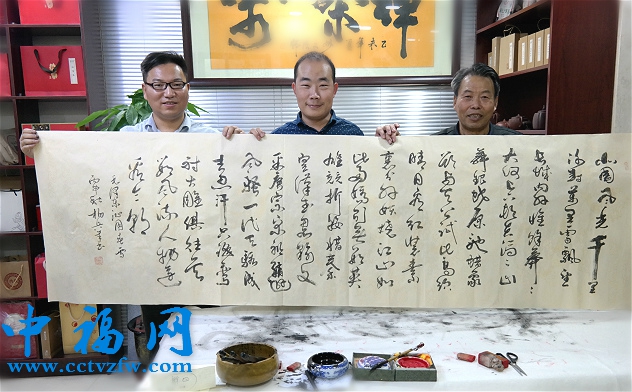 北国风光千里
冰封万里雪飘望
长城内外惟余莽莽
大河上下顿失滔滔山
舞银蛇原驰蜡象
欲与天公试比高须
晴日看红装素
裹分外妖娆江山如
此多娇引无数英
雄竞折腰惜秦
皇汉武略输文
采唐宗宋祖稍逊
风骚一代天骄成
吉思汗只识弯
射大雕俱往矣
数风流人物还
看今朝
毛泽东沁园春雪
中福网
www.cctvzfw.com